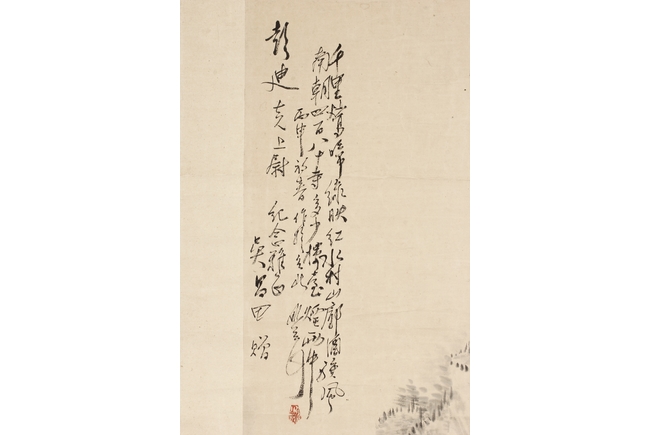 千里鶯啼綠映紅水村山郭酒旗風
南朝四百八十寺多少樓臺煙雨中
丙申初春作於
彭迪先上尉 紀念雅正
吳昌田贈